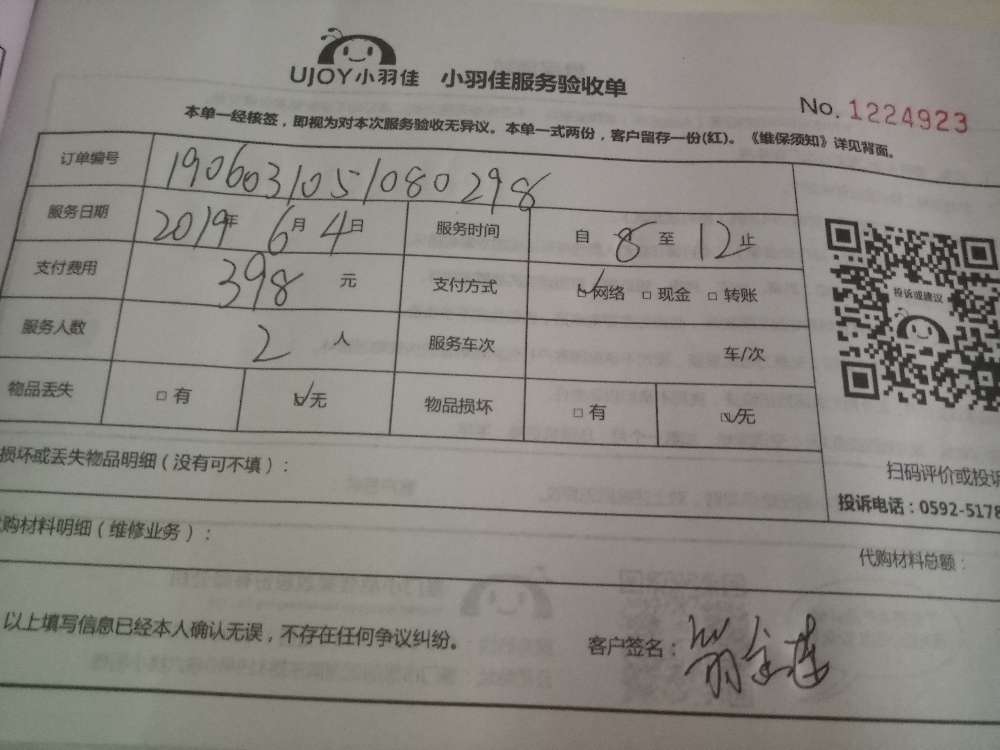 UJOY小羽佳 小羽佳服务验收单
No. 1224923
本单一经核签，即视为对本次服务验收无异议。本单一式两份，客户留存一份(红)。《维保须知》详见背面。
订单编号 190603105108 0298
服务日期 2019年 6月 4日 服务时间 自 8 至 12 止
支付费用 398 元 支付方式 网络 □ 现金 □ 转账
投诉或建议
服务人数 2 人 服务车次 车/次
物品丢失 □ 有 无 物品损坏 □ 有 无
损坏或丢失物品明细（没有可不填）：
扫码评价或投诉
投诉电话：0592-5178
购材料明细（维修业务）：
代购材料总额：
以上填写信息已经本人确认无误，不存在任何争议纠纷。
客户签名：